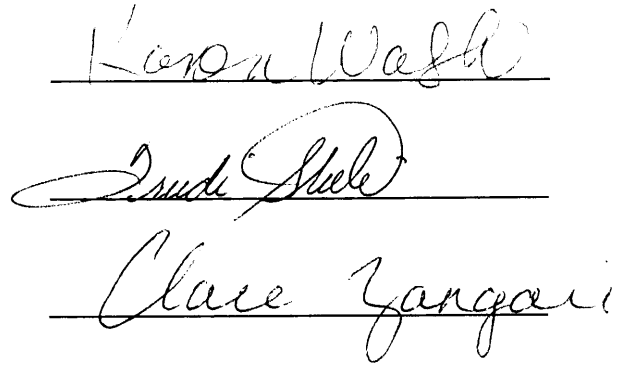 Karen Walsh
Trudi
Clare Zangari